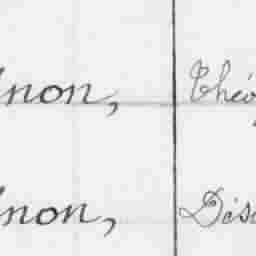 non, Théo
non, Dési